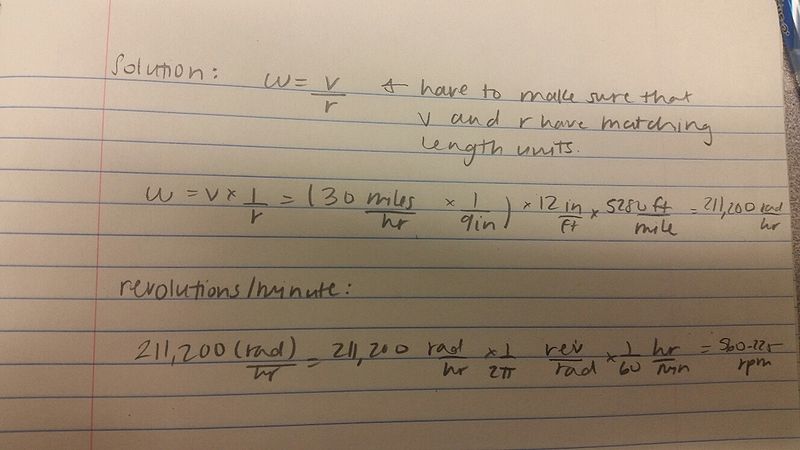 Solution: w = v/r & have to make sure that
v and r have matching
length units.
w = v × 1/r = (30 miles/hr × 1/9in) × 12 in/ft × 5280 ft/mile = 211,200 rad/hr
revolutions/minute:
211,200 (rad)/hr = 211,200 rad/hr × 1/2π rev/rad × 1/60 hr/min = 560.225 rpm